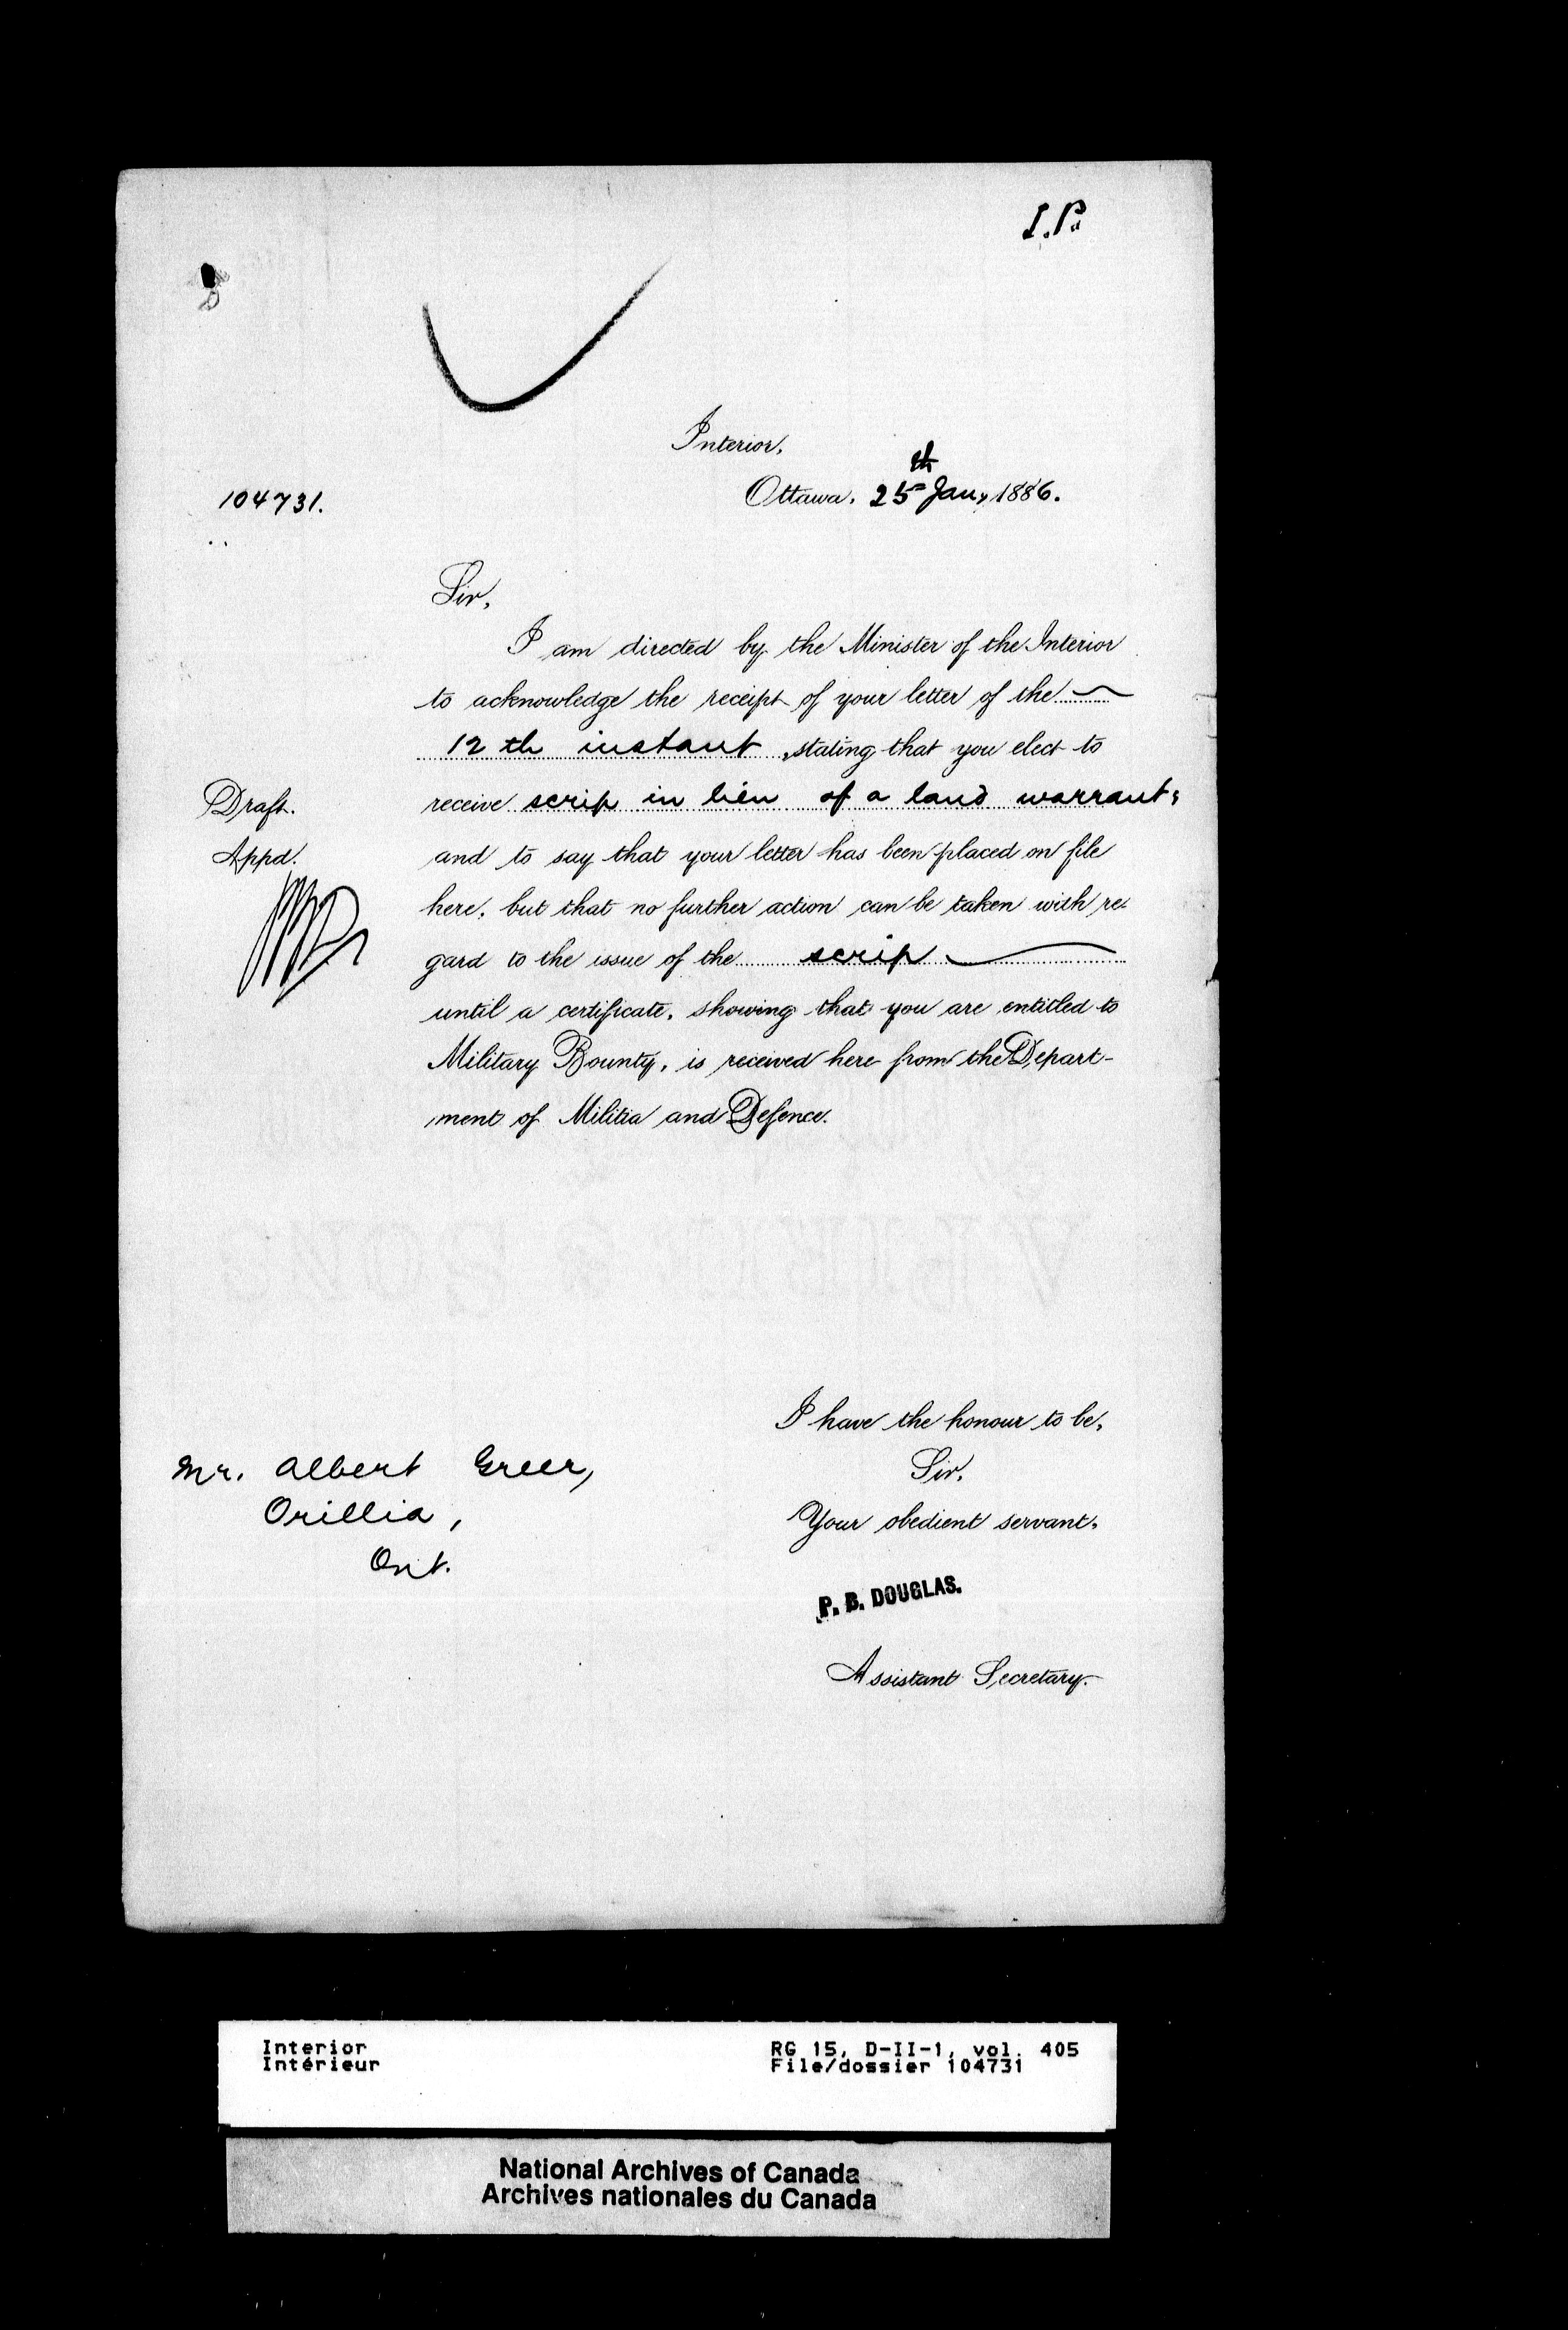 I.P.
Interior,
Ottawa, 25th Jany, 1886.
104731.
Sir,
I am directed by the Minister of the Interior
to acknowledge the receipt of your letter of the
12th instant, stating that you elect to
Draft.
receive scrip in lieu of a land warrant,
Appd.
and to say that your letter has been placed on file
here, but that no further action can be taken with re-
gard to the issue of the scrip
until a certificate, showing that you are entitled to
Military Bounty, is received here from the Depart-
ment of Militia and Defence.
I have the honour to be,
Sir,
Your obedient servant,
P. B. DOUGLAS.
Assistant Secretary.
Mr. Albert Greer,
Orillia,
Ont.
Interior
Intérieur
RG 15, D-II-1, vol. 405
File/dossier 104731
National Archives of Canada
Archives nationales du Canada